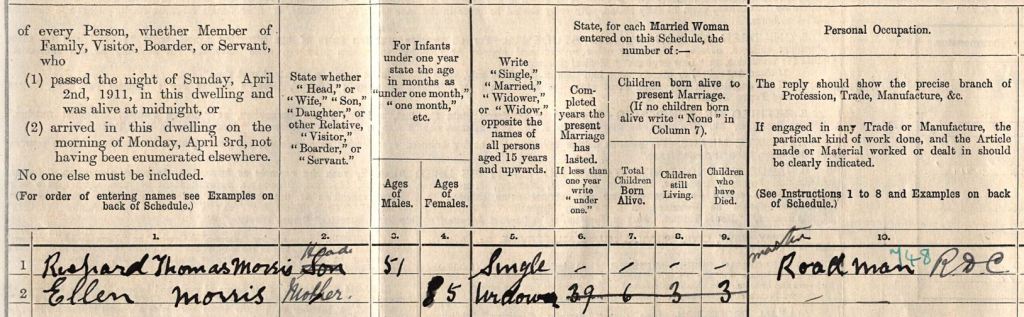 of every Person, whether Member of
Family, Visitor, Boarder, or Servant,
who
(1) passed the night of Sunday, April
2nd, 1911, in this dwelling and
was alive at midnight, or
(2) arrived in this dwelling on the
morning of Monday, April 3rd, not
having been enumerated elsewhere.
No one else must be included.
(For order of entering names see Examples on
back of Schedule.)
State whether
"Head," or
"Wife," "Son,"
"Daughter," or
other Relative,
"Visitor,"
"Boarder," or
"Servant."
For Infants
under one year
state the age
in months as
"under one month,"
"one month,"
etc.
Ages
of
Males.
Ages
of
Females.
Write
"Single,"
"Married,"
"Widower,"
or "Widow,"
opposite the
names of
all persons
aged 15 years
and upwards.
State, for each Married Woman
entered on this Schedule, the
number of:—
Com-
pleted
years the
present
Marriage
has
lasted.
If less than
one year
write
"under
one."
Children born alive to
present Marriage.
(If no children born
alive write "None" in
Column 7).
Total
Children
Born
Alive.
Children
still
Living.
Children
who
have
Died.
Personal Occupation.
The reply should show the precise branch of
Profession, Trade, Manufacture, &c.
If engaged in any Trade or Manufacture, the
particular kind of work done, and the Article
made or Material worked or dealt in should
be clearly indicated.
(See Instructions 1 to 8 and Examples on back
of Schedule.)
1. 2. 3. 4. 5. 6. 7. 8. 9. 10.
Head
1 Richard Thomas Morris Son 51 Single – – – – Road man 748 R D C
2 Ellen Morris Mother. 85 Widow 39 6 3 3 –